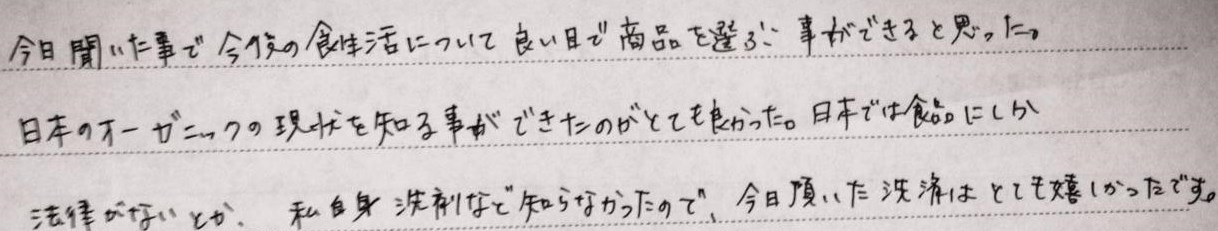 今日聞いた事で今後の食生活について良い目で商品を選ぶ事ができると思った。
日本のオーガニックの現状を知る事ができたのがとても良かった。日本では食品にしか
法律がないとか、私自身洗剤など知らなかったので、今日頂いた洗済はとても嬉しかったです。